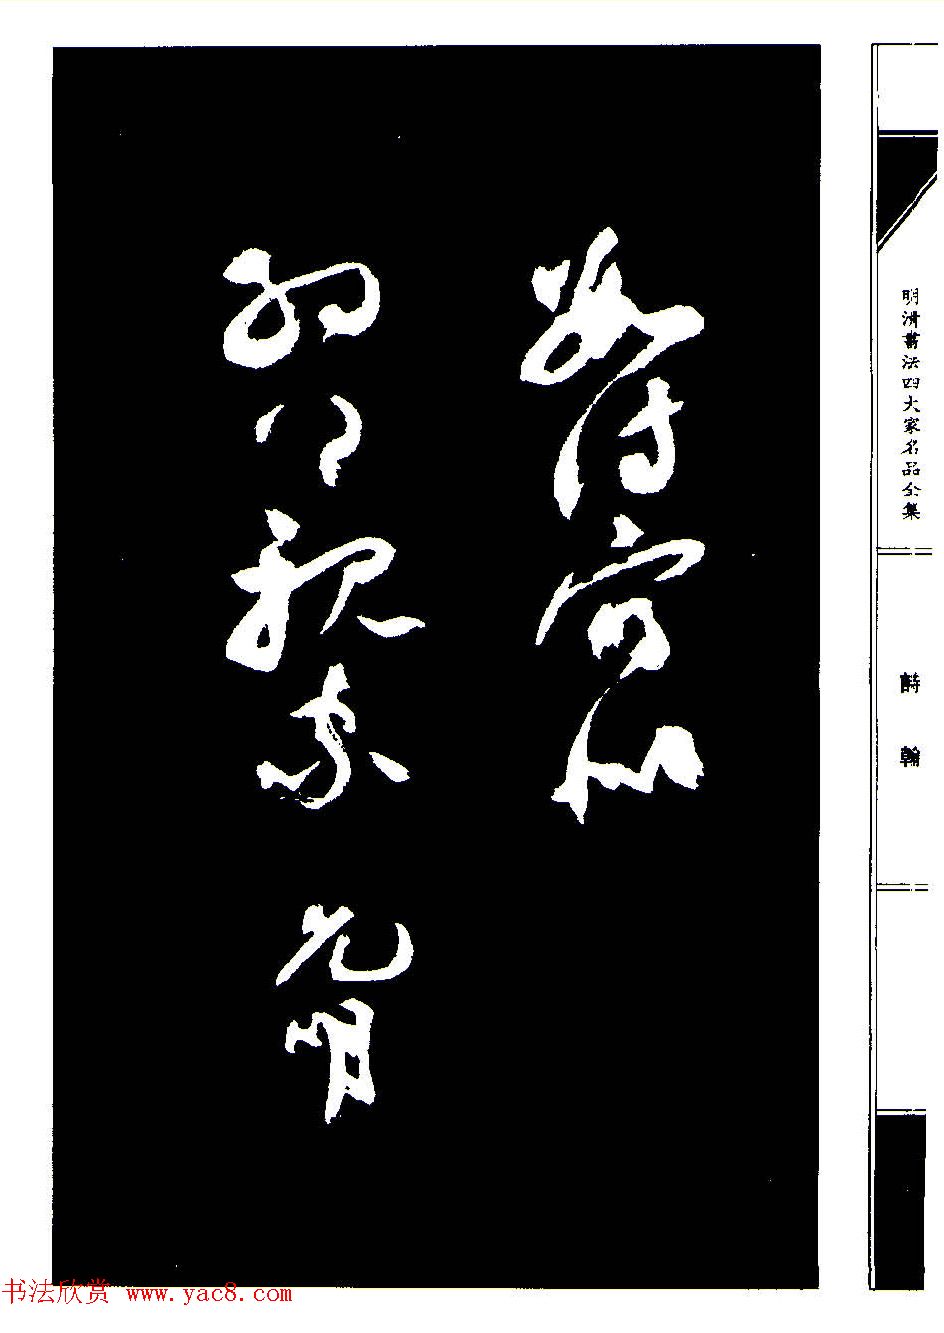 明清書法四大家名品全集
詩翰
得寄似
親家 允明
书法欣赏 www.yac8.com